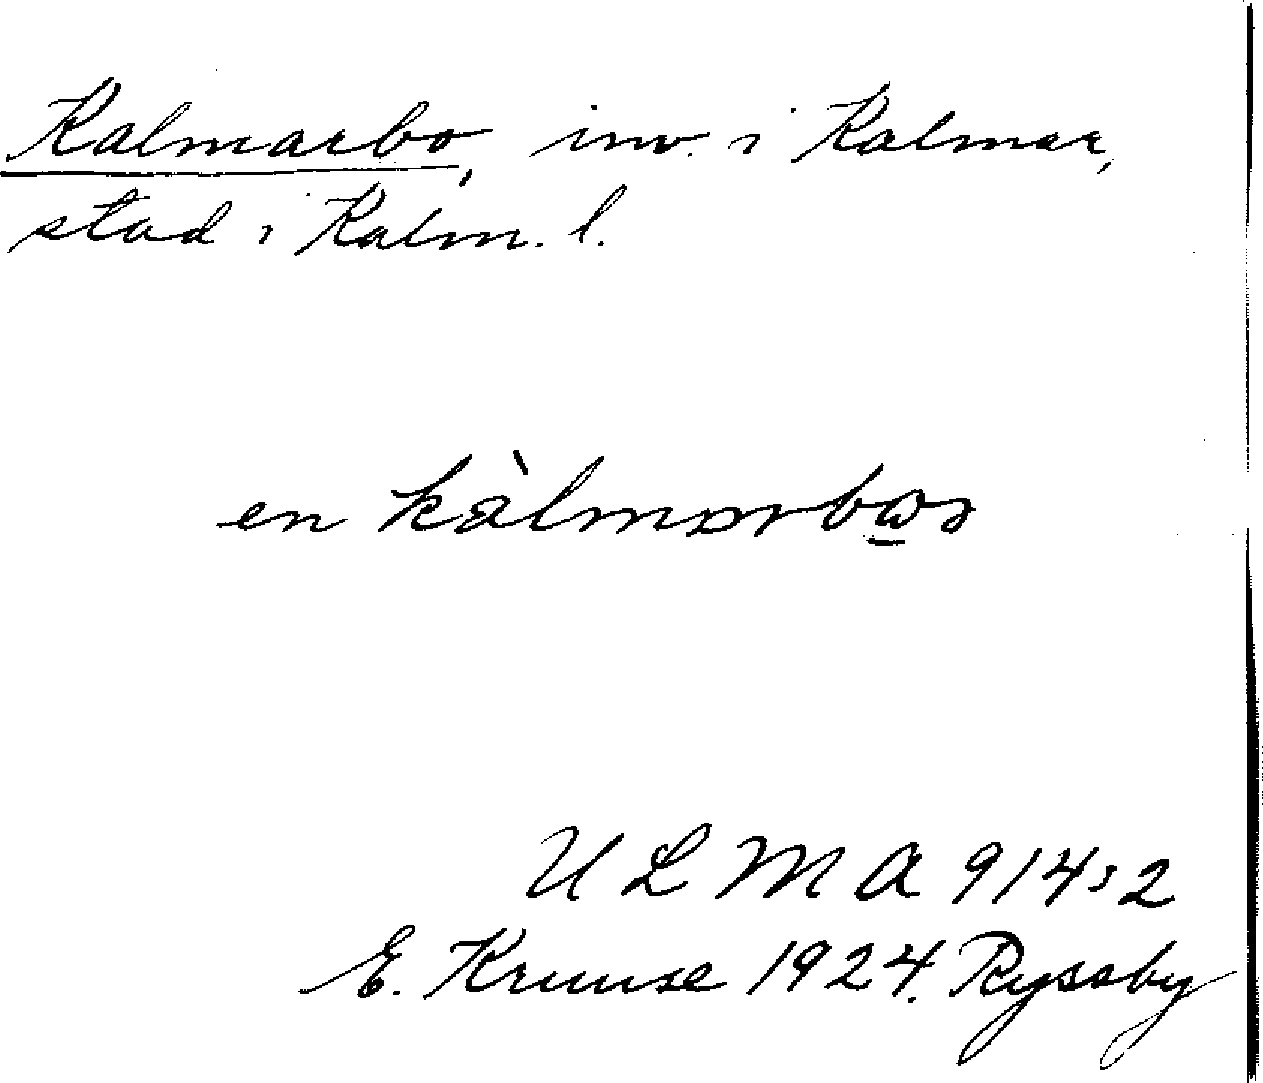 Kalmarbo, inv. i Kalmar,
stad i Kalm. l.
en
ULMA 914:2
E. Kruuse 1924. Ryssby